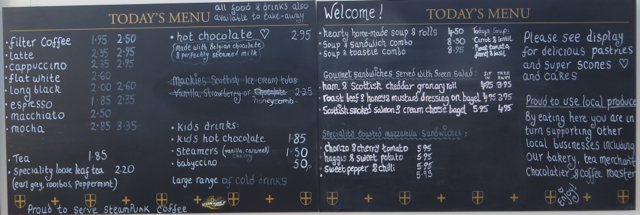 all food & drinks also
available to take-away
TODAY'S MENU
filter coffee 1.95 2.50
latte 2.35 2.95
cappuccino 2.35 2.95
flat white 2.60
long black 2.00 2.60
americano
espresso 1.85 2.35
macchiato 2.50
mocha 2.85 3.35
Tea 1.85
Speciality loose leaf tea 2.20
(earl grey, rooibos, peppermint)
Proud to serve steampunk coffee
hot chocolate ♡ 2.95
(made with Belgian chocolate
& perfectly steamed milk)
Mackies Scottish ice-cream tubs
Vanilla, Strawberry or Chocolate 2.25
honeycomb
Kids drinks:
kids hot chocolate 1.85
steamers (vanilla, caramel, 1.50
cherry
babyccino 50p
large range of cold drinks
Welcome!
TODAY'S MENU
hearty home-made soup & rolls 4.50
soup & sandwich combo 8.50
soup & toastie combo 8.95
Today's Soups
Carrot & lentil
Roast tomato,
Gourmet Sandwiches Served with Green Salad: SIT TAKE
IN AWAY
ham & Scottish cheddar granary roll 4.95 3.95
roast beef & honey & mustard dressing on bagel 4.95 3.95
Scottish smoked salmon & cream cheese bagel 5.95 4.95
Specialty toasted mozzarella sandwiches:
chorizo & cherry tomato 5.95
haggis & sweet potato 5.95
sweet pepper & chilli 5.95
Please see display
for delicious pastries
and super scones ♡
and cakes
Proud to use local produce
By eating here you are in
turn supporting other
local businesses including
our bakery, tea merchant,
chocolatier & coffee roaster
enjoy!